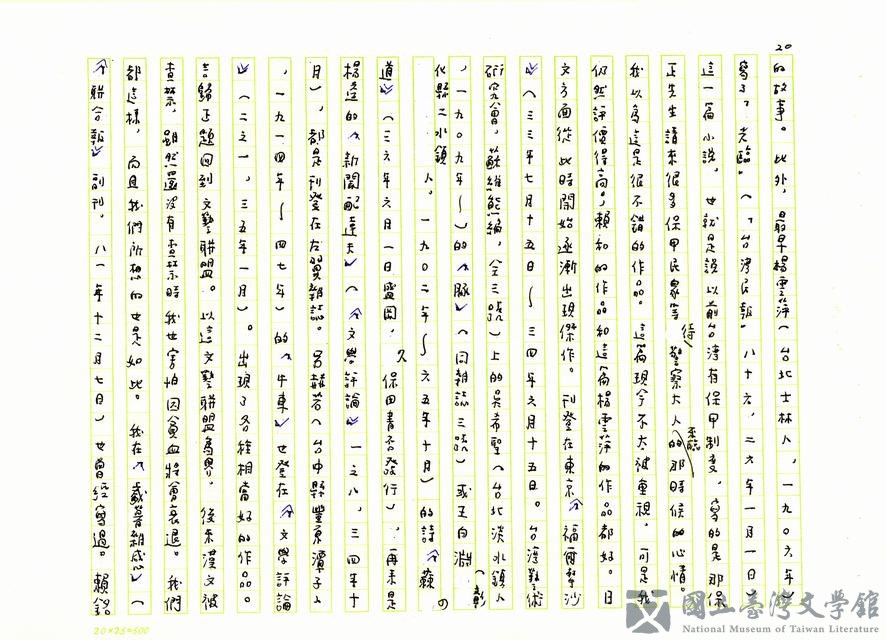 20
的故事。此外,最早楊雲萍(台北士林人,一九〇六年)
寫了「光臨」(「台灣民報」八十六,二六年一月一日)
這一篇小說,也就是說以前台灣有保甲制度,寫的是那保
正先生請來很多保甲民眾等待警察大人來臨的那時候的心情。
我以為這是很不錯的作品。這篇現今不太被重視,可是我
仍然評價得高,賴和的作品和這篇楊雲萍的作品都好。日
文方面從此時開始逐漸出現傑作。刊登在東京《福爾摩沙
》(三三年七月十五日~三四年六月十五日。台灣藝術
研究會,蘇維熊編,全三號)上的吳希聖(台北淡水鎮人
,一九〇九年~)的《豚》(同雜誌三號)或王白淵(彰
化縣二水鎮人,一九〇二年~六五年十月)的詩《蕀の
道》(三六年六月一日盛岡,久保田書店發行),再來是
楊逵的《新聞配達夫》(《文學評論》一之八,三四年十
月),都是刊登在左翼雜誌。呂赫若(台中縣豐原潭子人
,一九一四年~四七年)的《牛車》也登在《文學評論
》(二之一,三五年一月)。出現了各種相當好的作品。
言歸正題回到文藝聯盟。以這文藝聯盟為界,後來漢文被
查禁,雖然還沒有查禁時我也害怕因貧血將會衰退。我們
都這樣,而且我們所想的也是如此。我在《感蕃雜感》(
《聯合報》副刊,八一年十二月七日)也曾經寫過。賴銘
20×25=500
國立臺灣文學館
National Museum of Taiwan Literature